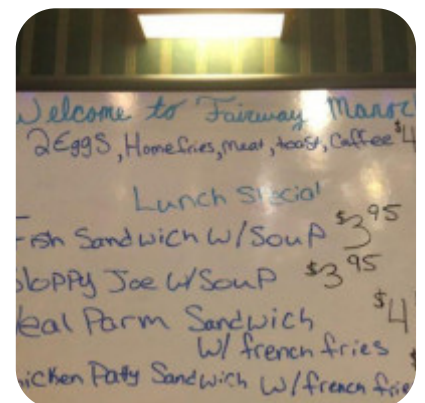 Welcome to Fairway Manor
2Eggs, Homefries, meat, toast, Caffee $4
Lunch Special
Fish Sandwich w/Soup $3 95
Sloppy Joe w/Soup $3 95
Veal Parm Sandwich $4
w/ french fries
hicken Paty Sandwich w/french frie